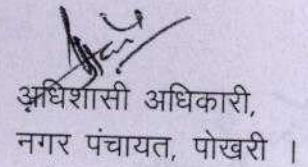 अधिशासी अधिकारी,
नगर पंचायत, पोखरी ।